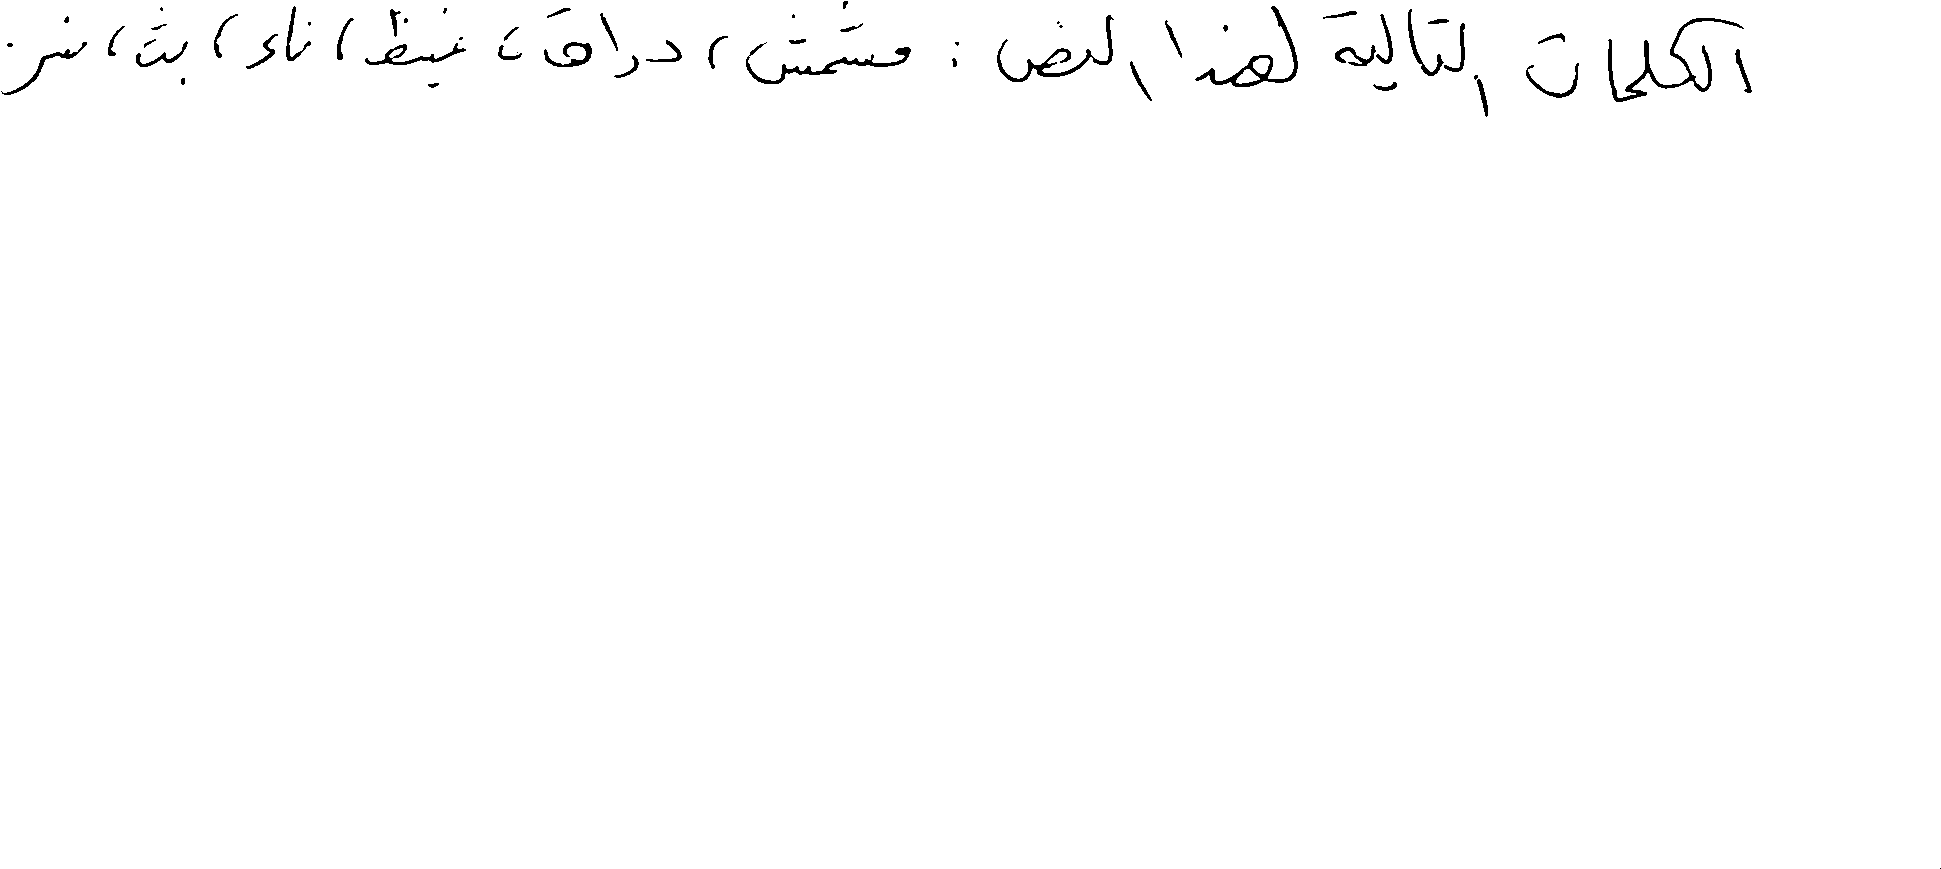 الكلمات التالية لهذا النص : مشمش ، دراق ، غيظ ، ناء ، بث ،